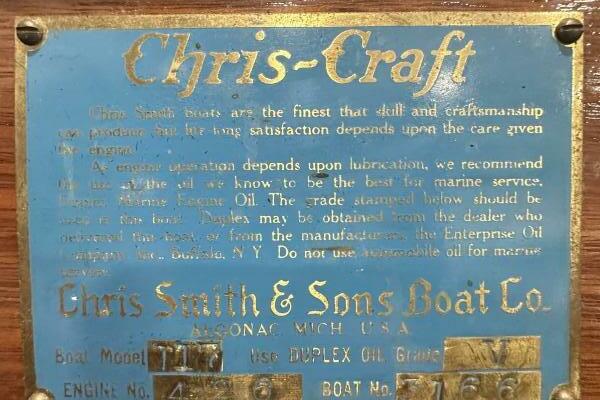 Chris-Craft
Chris Smith boats are the finest that skill and craftsmanship
can produce but life long satisfaction depends upon the care given
the engine.
As engine operation depends upon lubrication, we recommend
the use of the oil we know to be the best for marine service,
Duplex Marine Engine Oil. The grade stamped below should be
used in this boat. Duplex may be obtained from the dealer who
delivered this boat or from the manufacturers, the Enterprise Oil
Company, Inc., Buffalo, N Y Do not use automobile oil for marine
service.
Chris Smith & Sons Boat Co.
ALGONAC, MICH. U.S.A.
Boat Model Use DUPLEX OIL Grade V
ENGINE No. BOAT No.